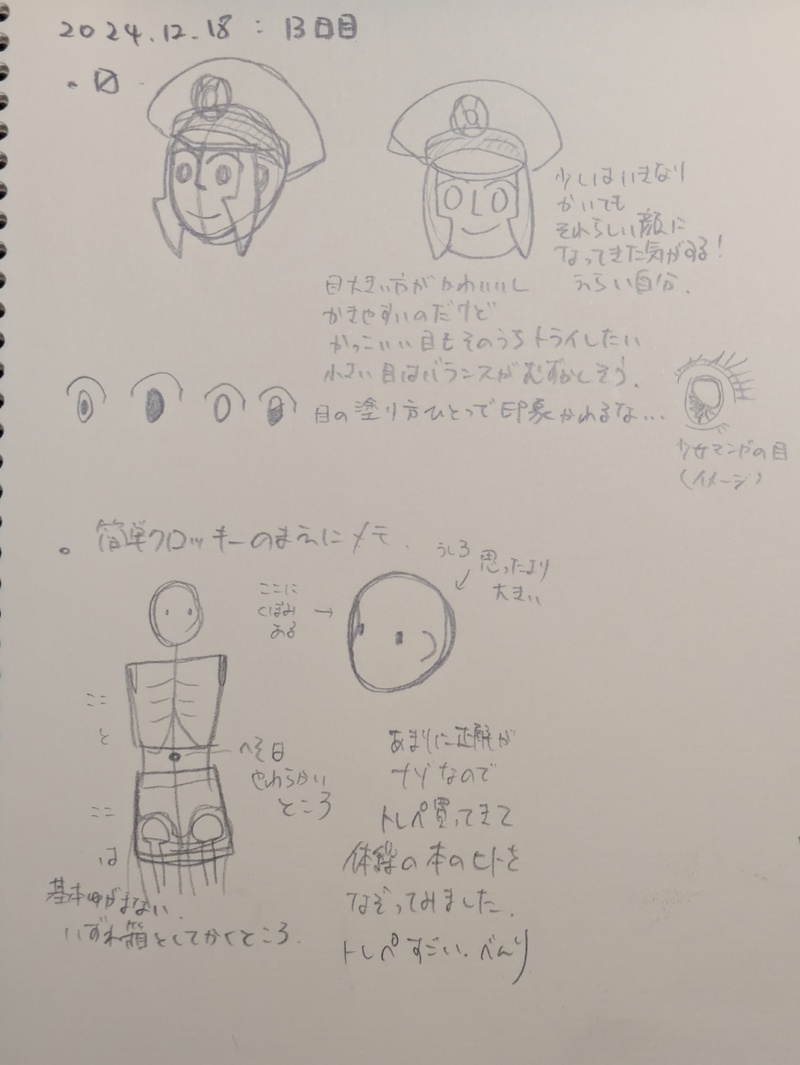 2024.12.18 : 13日目
少しはいきなり
かいても
それらしい顔に
なってきた気がする!
えらい自分.
目大きい方がかわいいし
かきやすいのだけど
かっこいい目もそのうちトライしたい
小さい目はバランスがむずかしそう.
目の塗り方ひとつで印象かわるな...
少女マンガの目
(イメージ)
簡単クロッキーのまえにメモ.
うしろ
思ったより
大きい
ここに
くぼみ
ある
→
ここ
と
ここ
は
基本曲がらない.
いずれ箱としてかくところ.
へそは
やわらかい
ところ
あまりに正解が
ナゾなので
トレペ買ってきて
体幹の本のヒトを
なぞってみました.
トレペすごい.べんり